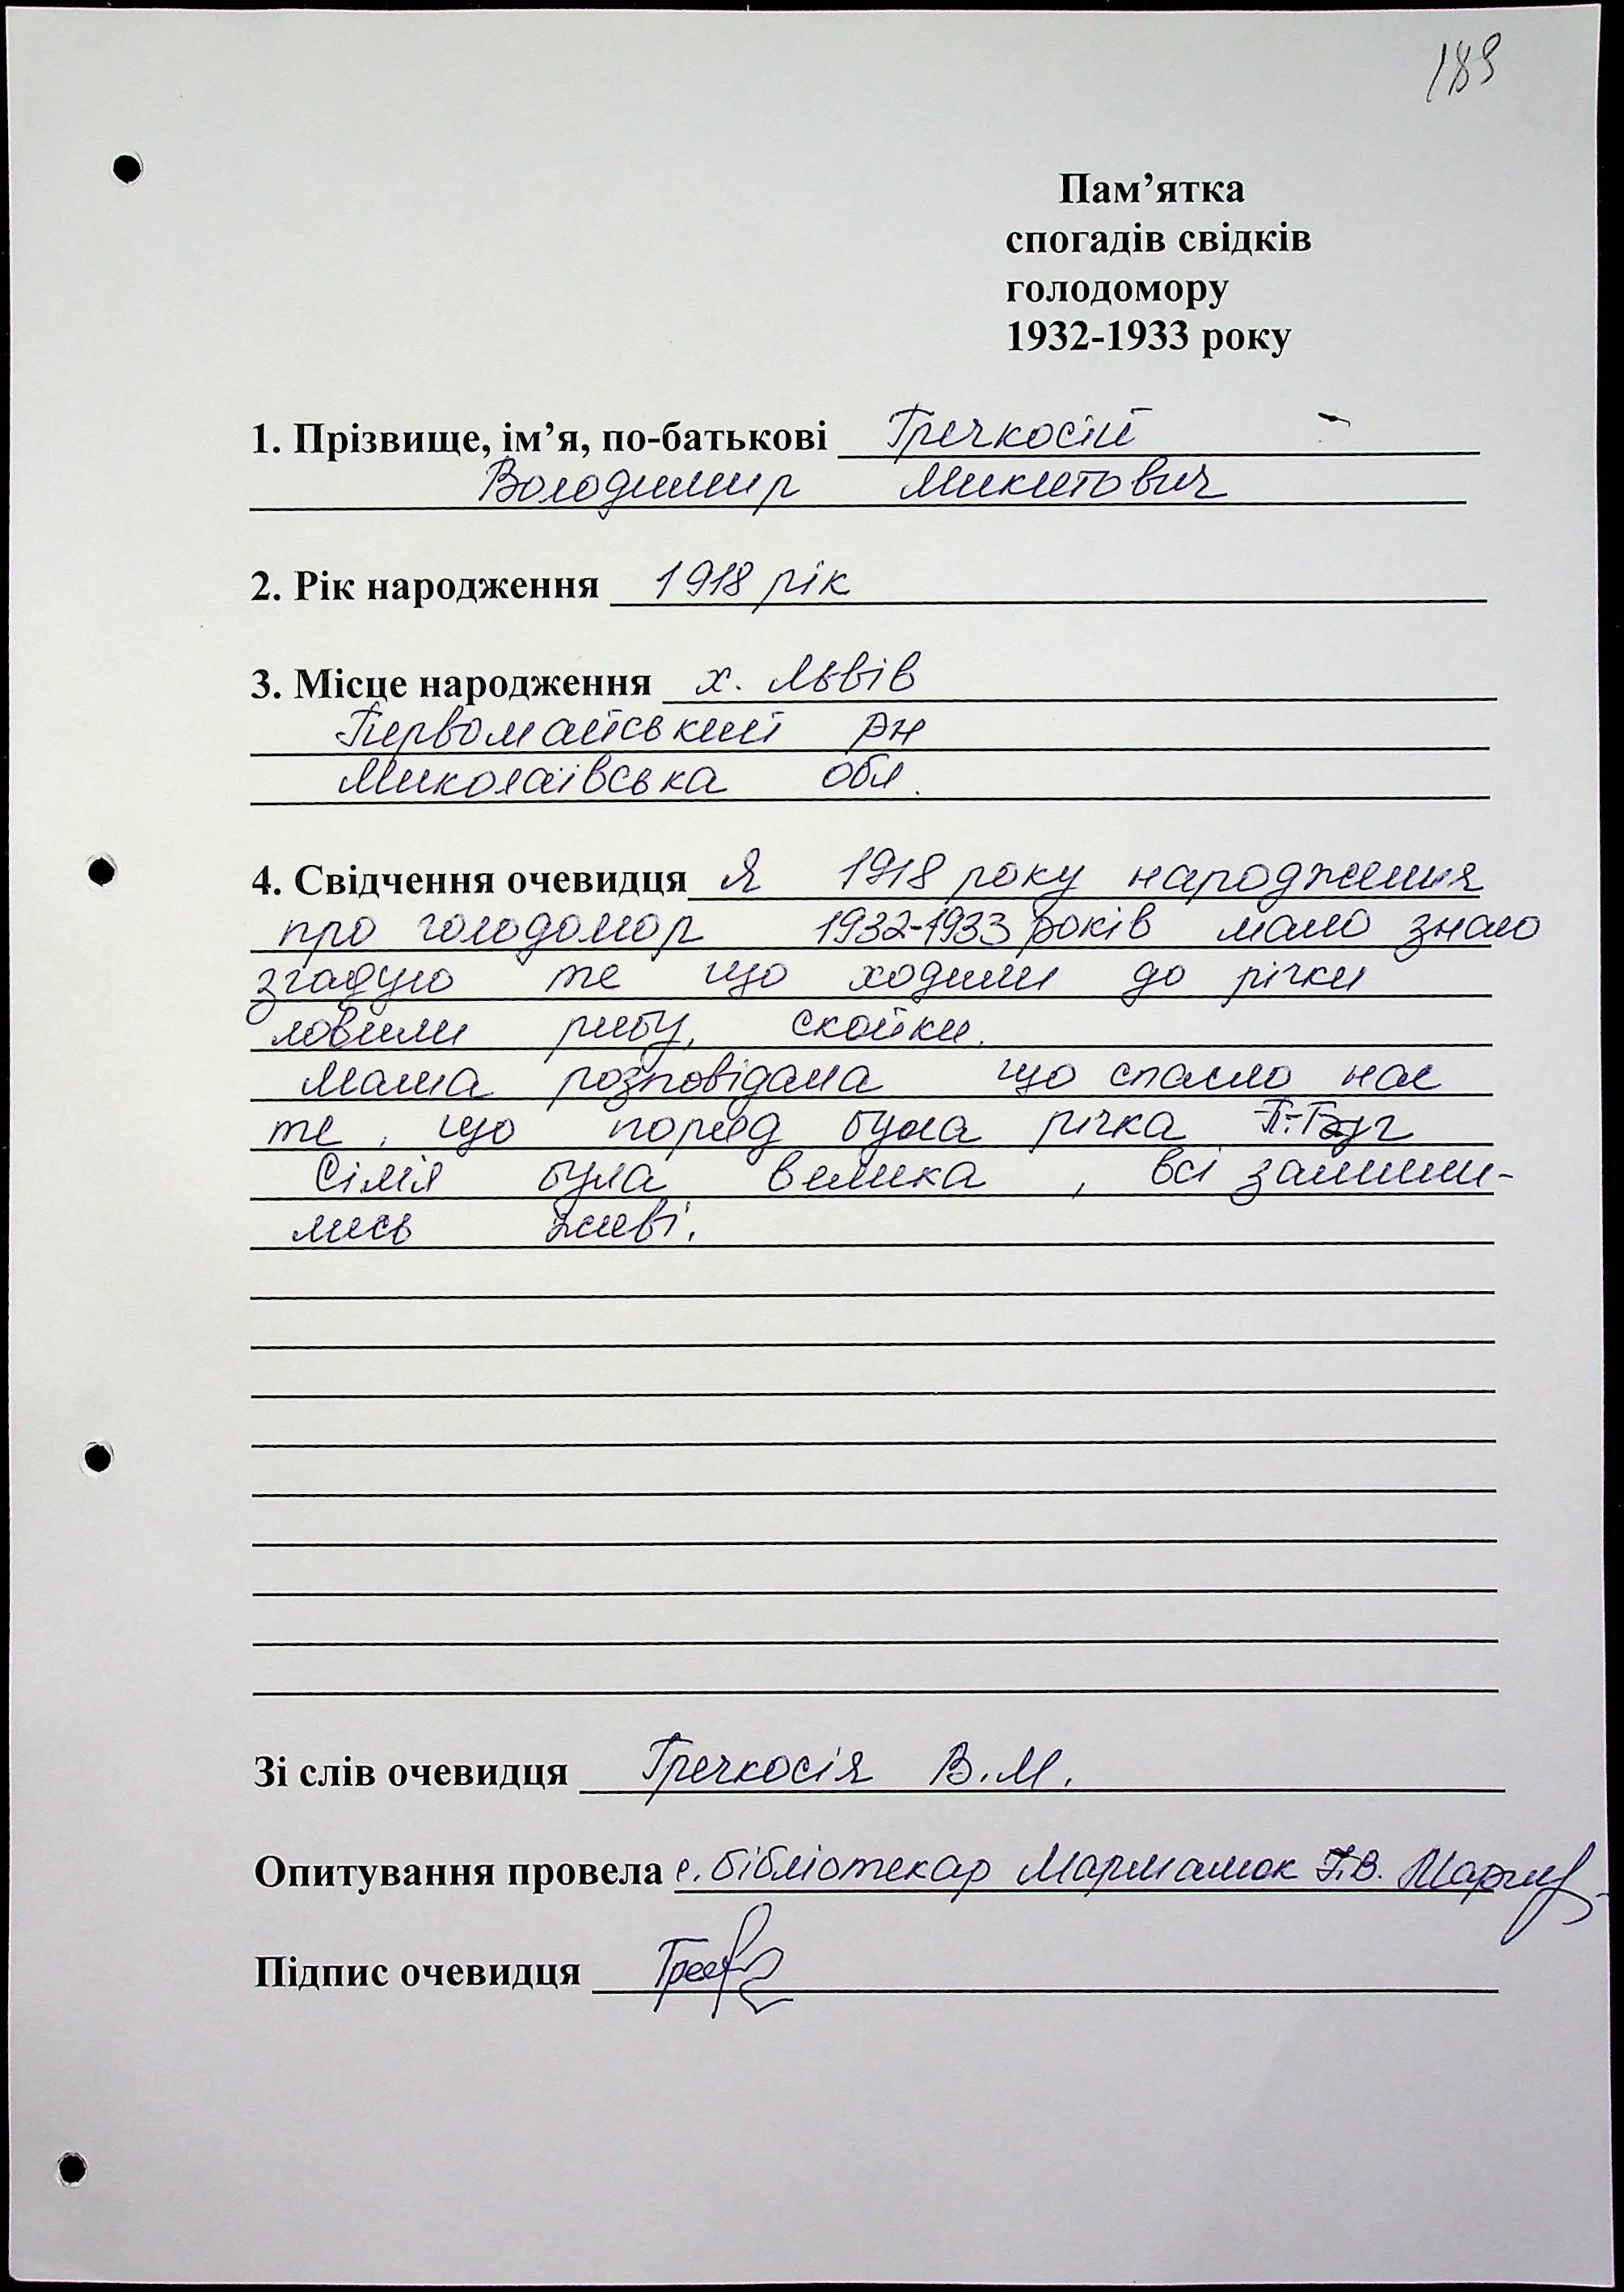 189
Пам’ятка
спогадів свідків
голодомору
1932-1933 року
1. Прізвище, ім’я, по-батькові Гречкосій
Володимир Микитович
2. Рік народження 1918 рік
3. Місце народження х. Львів
Первомайський рн
Миколаївська обл.
4. Свідчення очевидця Я 1918 року народження
про голодомор 1932-1933 років мало знаю
згадую те що ходили до річки
ловили рибу, скойки.
Мама розповідала що спасло нас
те, що поряд була річка П-Буг
Сімія була велика, всі залиши-
лись живі.
Зі слів очевидця Гречкосія В.М.
Опитування провела с. бібліотекар Мармалюк Г.В.
Підпис очевидця